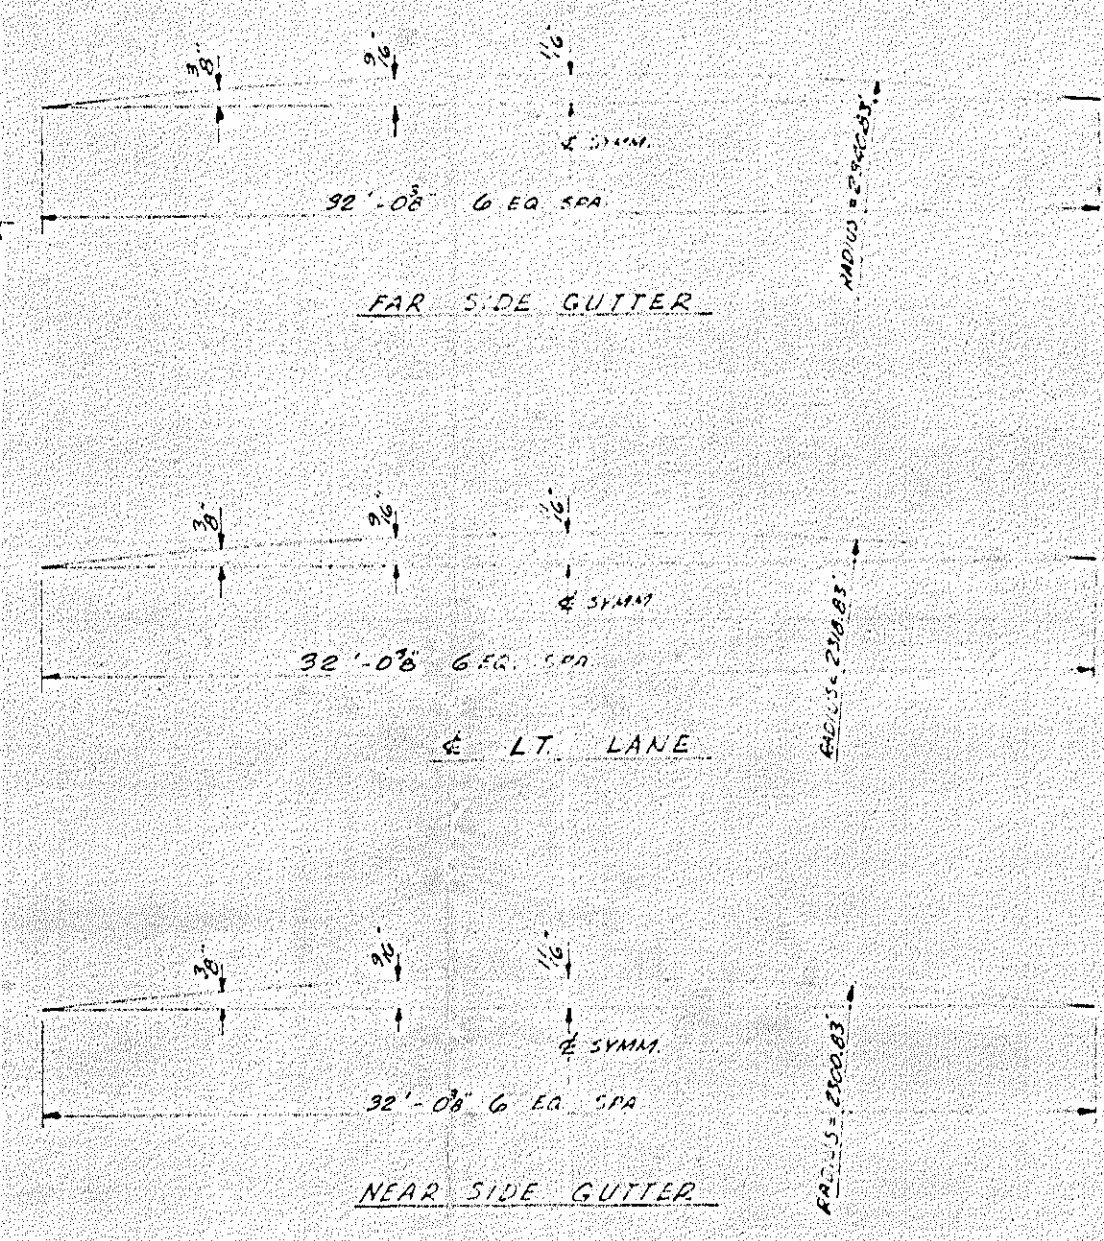 3/8" 9/16" 11/16"
℄ SYMM.
32'-0 3/8" 6 EQ SPA.
FAR SIDE GUTTER
3/8" 9/16" 11/16"
℄ SYMM
32'-0 3/8" 6 EQ. SPA.
RADIUS = 2318.83'
℄ LT. LANE
3/8" 9/16" 11/16"
℄ SYMM.
32'-0 3/8" 6 EQ. SPA
RADIUS = 2300.83'
NEAR SIDE GUTTER